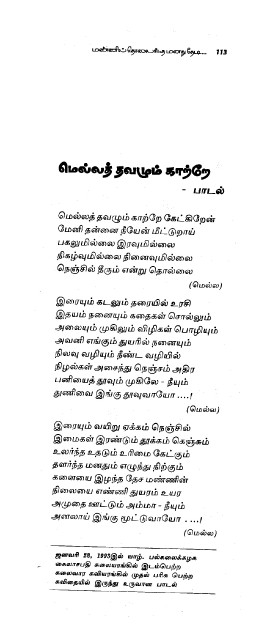 மண்ணிய் தொலைந்த மனது தேடி... 113
மெல்லத் தவழும் காற்றே
- பாடல்
மெல்லத் தவழும் காற்றே கேட்கிறேன்
மேனி தன்னை நீயேன் மீட்டுறாய்
பகலுமில்லை இரவுமில்லை
நிகழ்வுமில்லை நினைவுமில்லை
நெஞ்சில் தீரும் என்று தொல்லை
(மெல்ல)
இரையும் கடலும் தரையில் உரசி
இதயம் நனையும் கதைகள் சொல்லும்
அலையும் முகிலும் விழிகள் பொழியும்
அவனி எங்கும் துயரில் நனையும்
நிலவு வழியும் நீண்ட வழியில்
நிழல்கள் அசைந்து நெஞ்சம் அதிர
பனியைத் தூவும் முகிலே - நீயும்
துணிவை இங்கு தூவுவாயோ ....!
(மெல்ல)
இரையும் வயிறு ஏக்கம் நெஞ்சில்
இமைகள் இரண்டும் தூக்கம் கெஞ்சும்
உலர்ந்த உதடும் உரிமை கேட்கும்
தளர்ந்த மனதும் எழுந்து நிற்கும்
களையை இழந்த தேச மண்ணின்
நிலையை எண்ணி துயரம் உயர
அமுதை ஊட்டும் அம்மா - நீயும்
அனலாய் இங்கு மூட்டுவாயோ ....!
(மெல்ல)
ஜனவரி 28, 1995இல் யாழ். பல்கலைக்கழக
கைலாசபதி கலையரங்கில் இடம்பெற்ற
கலைவார கவியரங்கில் முதல் பரிசு பெற்ற
கவிதையில் இருந்து உருவான பாடல்